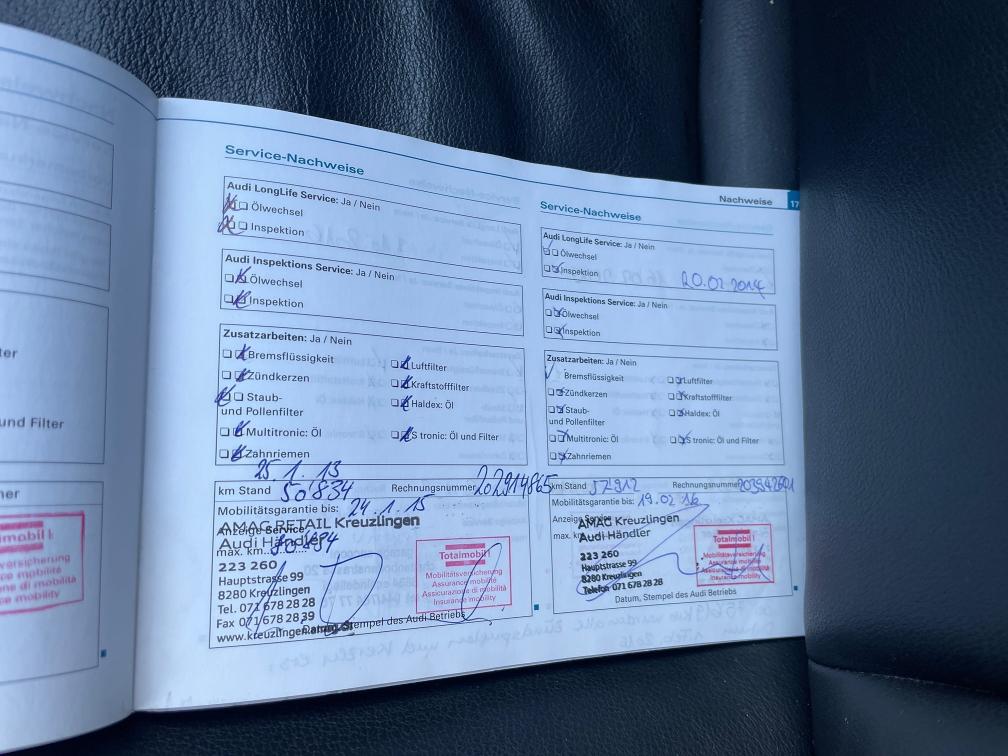 ter
und Filter
ner
mobil
versicherung
nce mobilité
ne di mobilità
ce mobility
Service-Nachweise
Audi LongLife Service: Ja / Nein
Ölwechsel
Inspektion
Audi Inspektions Service: Ja / Nein
Ölwechsel
Inspektion
Zusatzarbeiten: Ja / Nein
Bremsflüssigkeit
Luftfilter
Zündkerzen
Kraftstofffilter
Staub-
und Pollenfilter
Haldex: Öl
Multitronic: Öl
S tronic: Öl und Filter
Zahnriemen
25.1.13
km Stand 50'834
Rechnungsnummer 202914865
Mobilitätsgarantie bis: 24.1.15
Anzeige Service
AMAG RETAIL Kreuzlingen
Audi Händler
max. km
223 260
Hauptstrasse 99
8280 Kreuzlingen
Tel. 071 678 28 28
Fax 071 678 28 39
www.kreuzlingen.amag.ch
Totalmobil!
Mobilitätsversicherung
Assurance mobilité
Assicurazione di mobilità
Insurance mobility
Datum, Stempel des Audi Betriebs
Nachweise 17
Service-Nachweise
Audi LongLife Service: Ja / Nein
Ölwechsel
Inspektion
20.02.2014
Audi Inspektions Service: Ja / Nein
Ölwechsel
Inspektion
Zusatzarbeiten: Ja / Nein
Bremsflüssigkeit
Luftfilter
Zündkerzen
Kraftstofffilter
Staub-
und Pollenfilter
Haldex: Öl
Multitronic: Öl
S tronic: Öl und Filter
Zahnriemen
km Stand 57'912
Rechnungsnummer
Mobilitätsgarantie bis: 19.02.16
Anzeige Service
AMAG Kreuzlingen
Audi Händler
max. km
223 260
Hauptstrasse 99
8280 Kreuzlingen
Telefon 071 678 28 28
Totalmobil!
Mobilitätsversicherung
Assurance mobilité
Assicurazione di mobilità
Insurance mobility
Datum, Stempel des Audi Betriebs